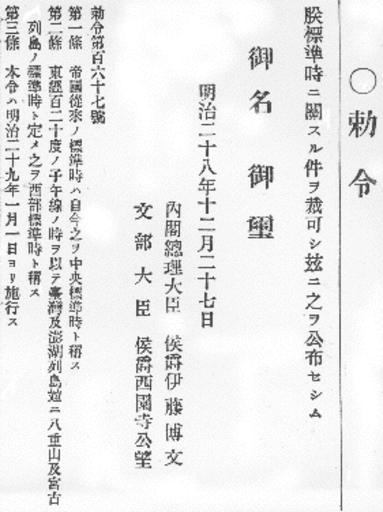 ○勅令
朕標準時ニ關スル件ヲ裁可シ玆ニ之ヲ公布セシム
御名御璽
明治二十八年十二月二十七日
內閣總理大臣 侯爵伊藤博文
文部大臣 侯爵西園寺公望
勅令第百六十七號
第一條 帝國從來ノ標準時ハ自今之ヲ中央標準時ト稱ス
第二條 東經百二十度ノ子午線ノ時ヲ以テ臺灣及澎湖列島竝ニ八重山及宮古
列島ノ標準時ト定メ之ヲ西部標準時ト稱ス
第三條 本令ハ明治二十九年一月一日ヨリ施行ス